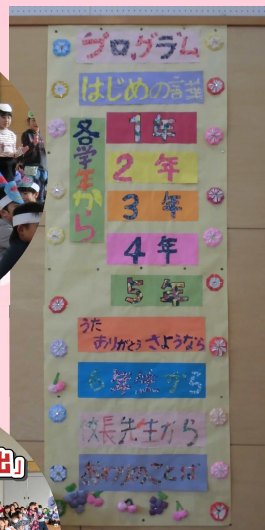 プログラム
はじめの言葉
各学年から
1年
2年
3年
4年
5年
うた
ありがとうさようなら
6年生から
校長先生から
おわりのことば
出」